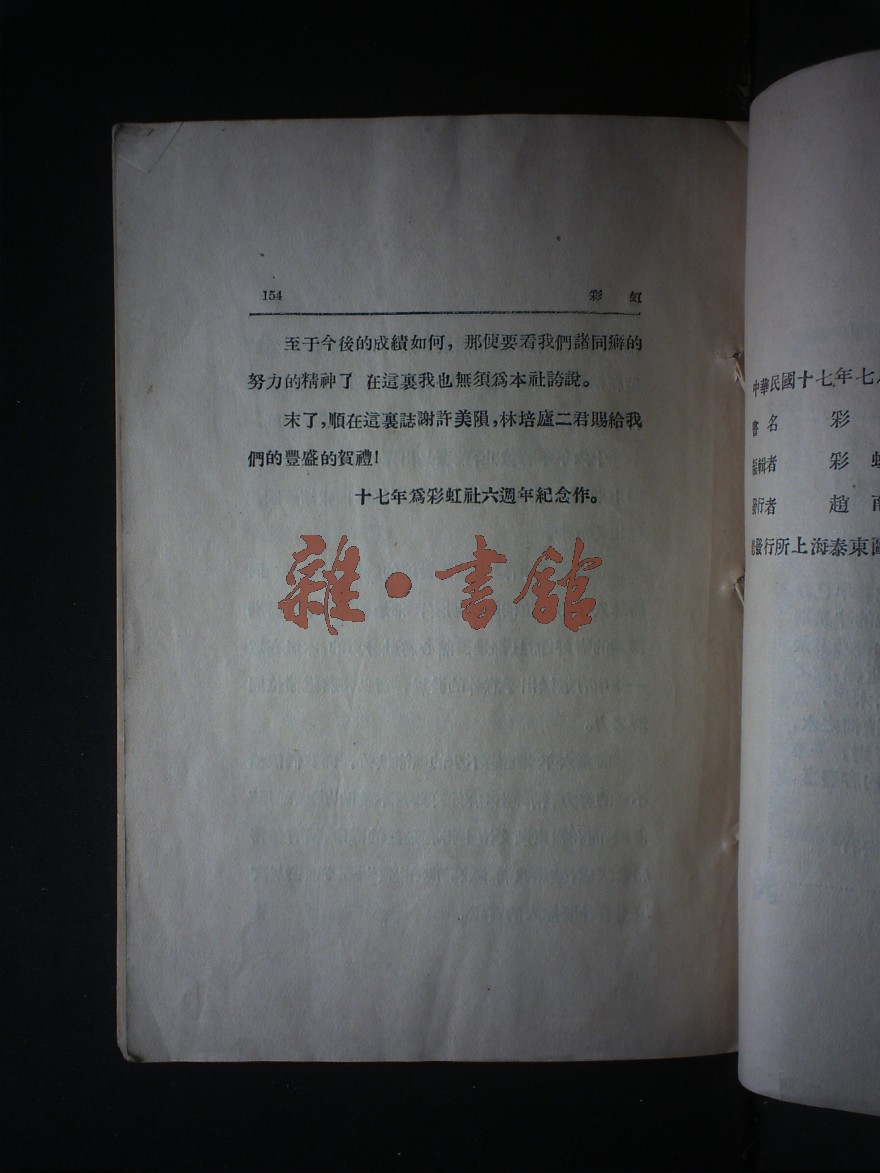 154 彩虹
至于今後的成績如何，那便要看我們諸同癖的
努力的精神了 在這裏我也無須爲本社誇說。
末了，順在這裏誌謝許美隕，林培廬二君賜給我
們的豐盛的賀禮！
十七年爲彩虹社六週年紀念作。
雜·書館
中華民國十七年七
書名 彩
編輯者 彩
發行者 趙
總發行所上海泰東